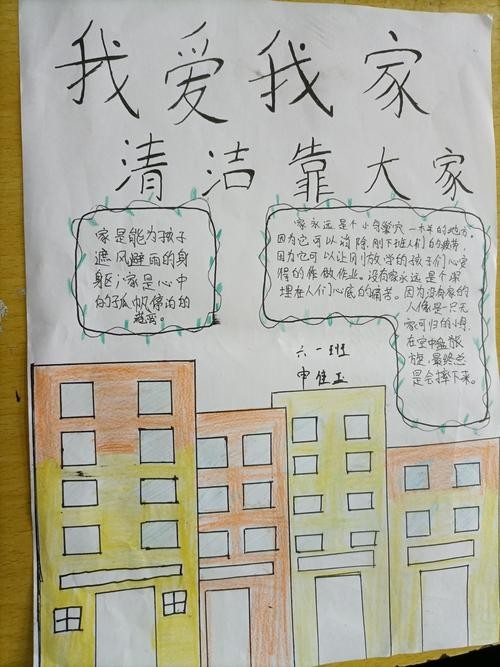 我爱我家
清洁靠大家
家是能为孩子
遮风避雨的身
躯；家是心中
的孤帆停泊的
港湾。
家永远是个小的地方
因为它可以消除刚下班人们的疲劳，
因为它可以让刚放学的孩子们心安
得的做作业。没有家永远是个深
埋在人们心底的痛苦。因为没有家的
人像是一只无
家可归的小鸟
在空中盘旅
旋，最终总
是会摔下来。
六一班
申佳玉